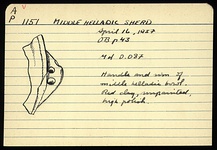 A
P 1151 MIDDLE HELLADIC SHERD
April 16, 1957
OB p 43
Md. 0.087
Handle and rim of
middle helladic bowl.
Red clay, unpainted,
high polish.